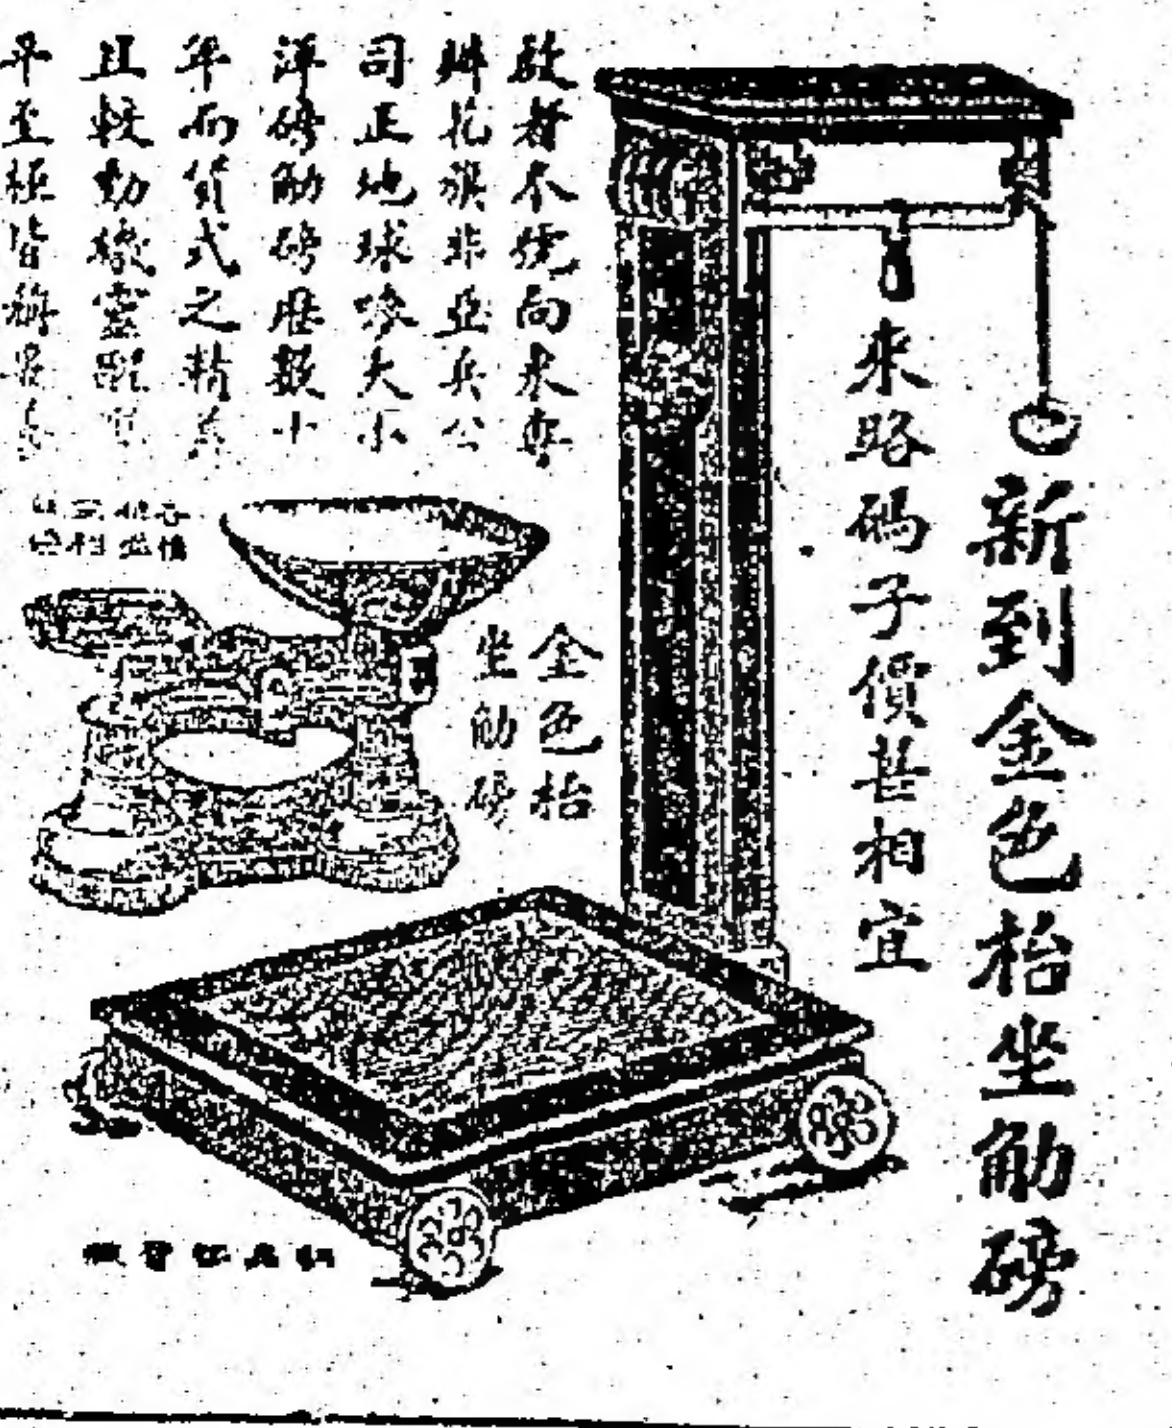 新到金色枱坐觔磅
來路碼子價甚相宜
啟者本號向來專
辦花旗非亞兵公
司正地球嘜大小
洋磅觔磅歷數十
年而貨式之精美
且較動機靈醒
平至極皆稱
金色枱
坐觔磅